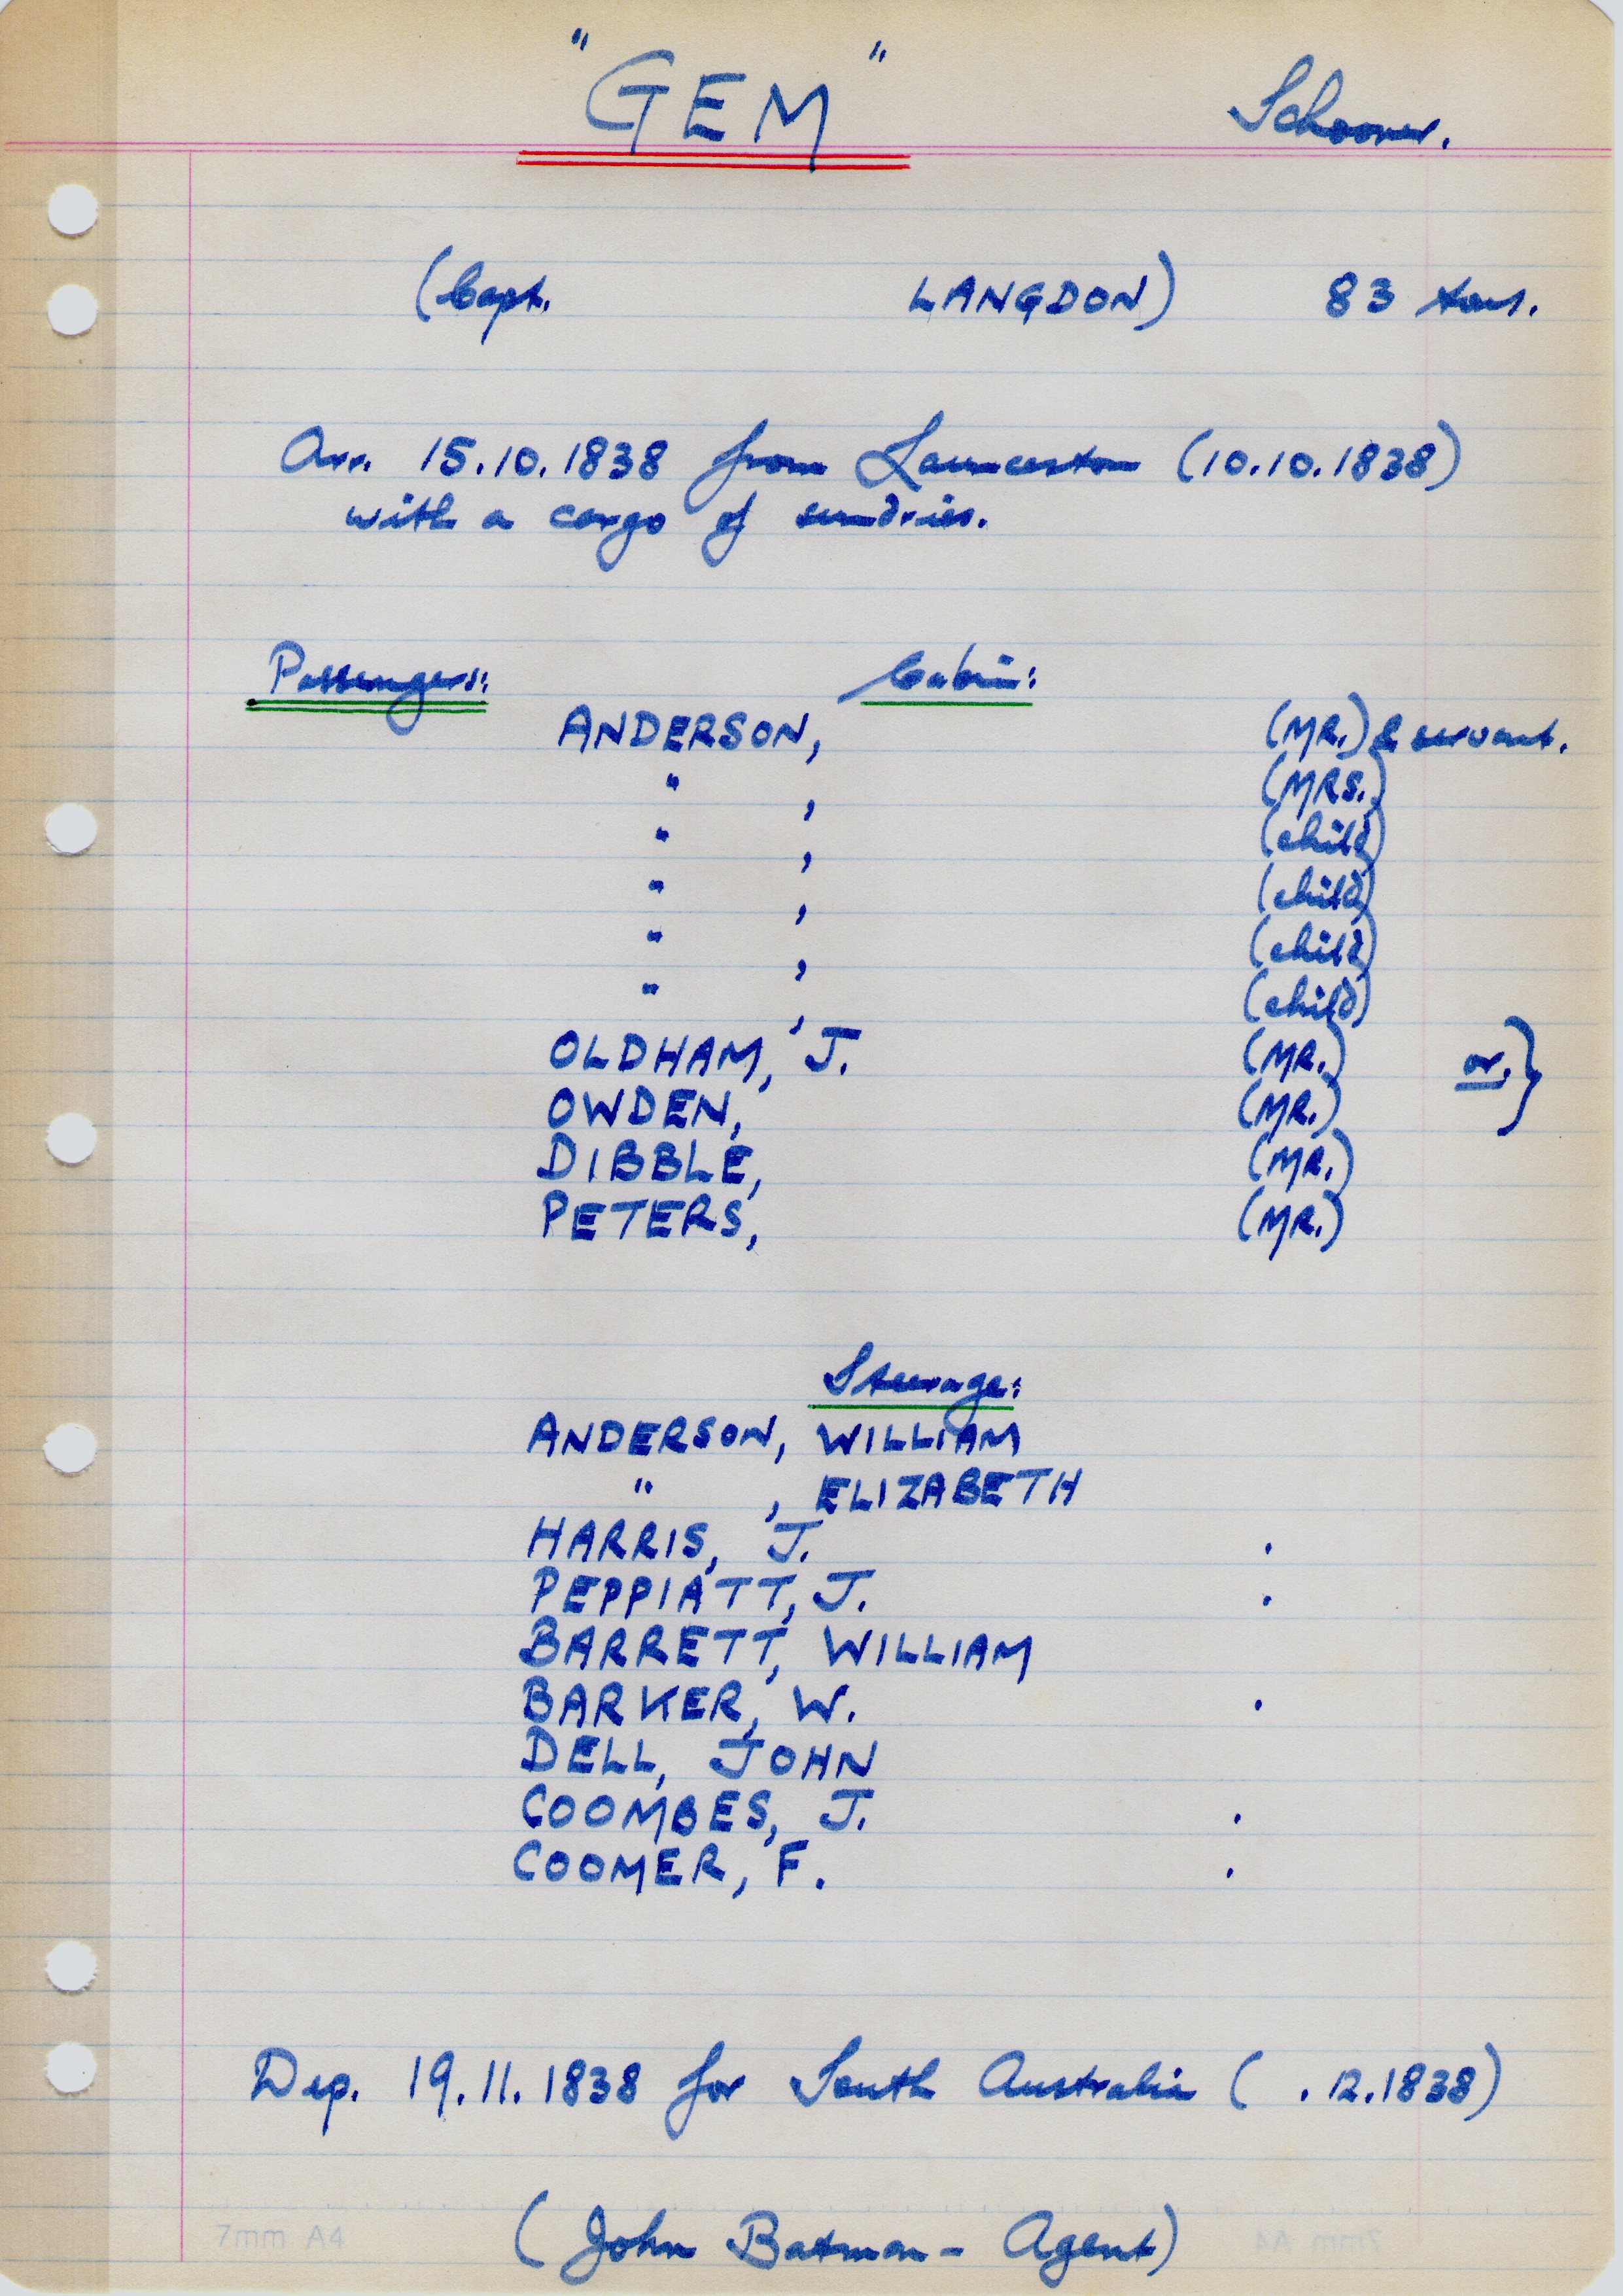 "GEM" Schooner.
(Capt. LANGDON) 83 tons.
Arr. 15.10.1838 from Launceston (10.10.1838)
with a cargo of sundries.
Passengers: Cabin:
ANDERSON, (MR.) & servant.
" , (MRS.)
" , (child)
" , (child)
" , (child)
" , (child)
OLDHAM, J. (MR.) or, }
OWDEN, (MR.)
DIBBLE, (MR.)
PETERS, (MR.)
Steerage:
ANDERSON, WILLIAM
" , ELIZABETH
HARRIS, J. .
PEPPIATT, J. .
BARRETT, WILLIAM
BARKER, W. .
DELL, JOHN
COOMBES, J. .
COOMER, F. .
Dep. 19.11.1838 for South Australia ( .12.1838)
(John Batman - Agent)
7mm A4